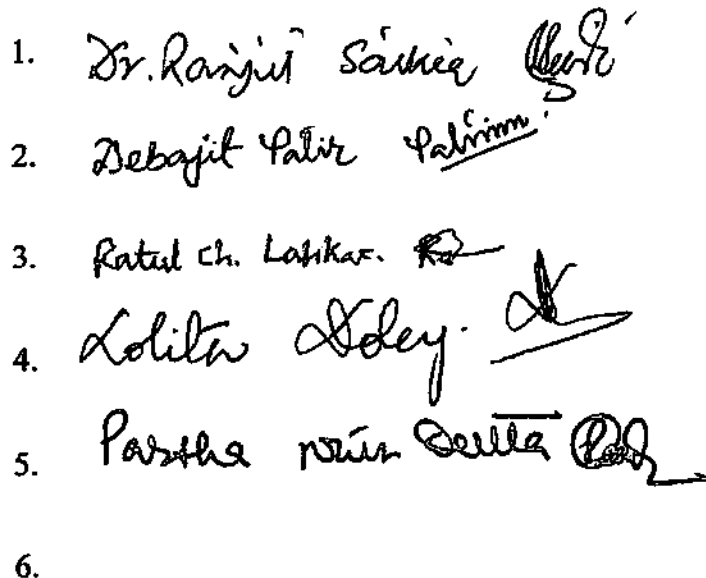 1. Dr. Ranjit Saikia
2. Debajit Patir
3. Ratul Ch. Laskar.
4. Lolita Doley.
5. Partha Dutta
6.